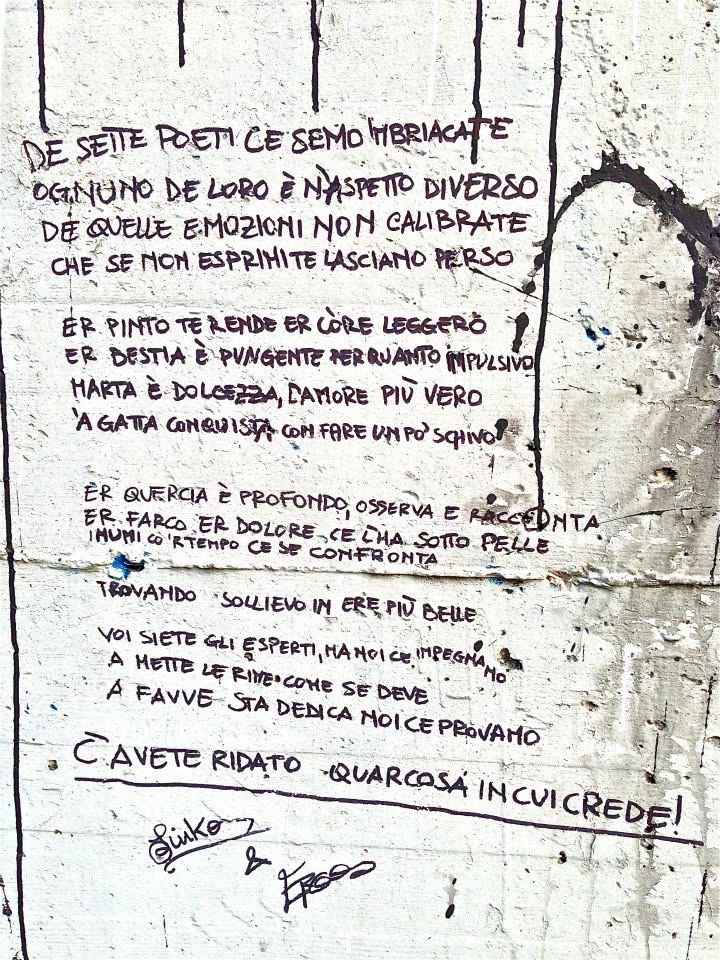 DE SETTE POETI CE SEMO 'MBRIACATE
OGNUNO DE LORO È N'ASPETTO DIVERSO
DE QUELLE EMOZIONI NON CALIBRATE
CHE SE NON ESPRIMITE LASCIANO PERSO
ER PINTO TE RENDE ER CÒRE LEGGERO
ER BESTIA È PUNGENTE PER QUANTO IMPULSIVO
MARTA È DOLCEZZA, L'AMORE PIÙ VERO
'A GATTA CONQUISTA CON FARE UN PO' SCHIVO
ER QUERCIA È PROFONDO, OSSERVA E RACCONTA
ER FARCO ER DOLORE CE L'HA SOTTO PELLE
INUMI CO 'R TEMPO CE SE CONFRONTA
TROVANDO SOLLIEVO IN ERE PIÙ BELLE
VOI SIETE GLI ESPERTI, MA NOI CE IMPEGNAMO
A METTE LE RIME COME SE DEVE
A FAVVE STA DEDICA NOI CE PROVAMO
C'AVETE RIDATO QUARCOSA IN CUI CREDE!
&